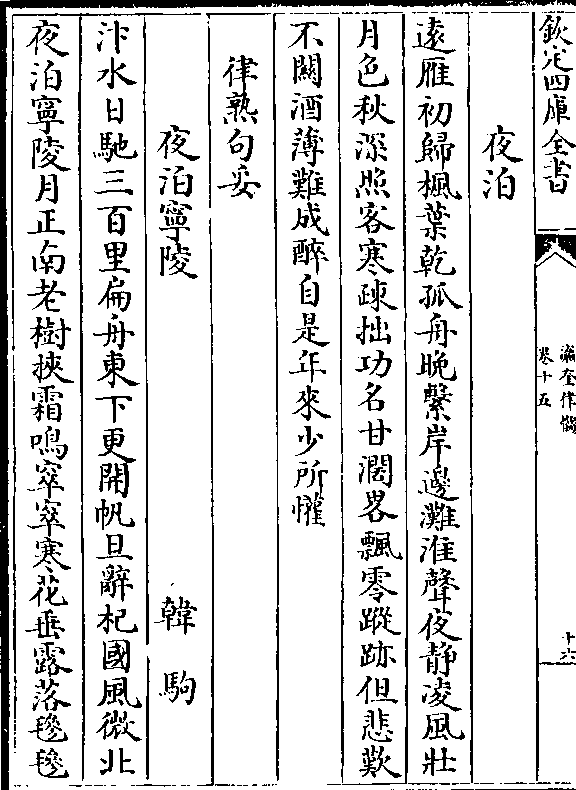 欽定四庫全書
瀛奎律髓
卷十五
十六
夜泊
遠雁初歸楓葉乾孤舟晚繫岸邊灘淮聲夜静凌風壯
月色秋深照客寒踈拙功名甘濶畧飄零蹤跡但悲歎
不關酒薄難成醉自是年來少所懽
律熟句妥
夜泊寧陵 韓駒
汴水日馳三百里扁舟東下更開帆旦辭杞國風微北
夜泊寧陵月正南老樹挾霜鳴窣窣寒花垂露落毿毿